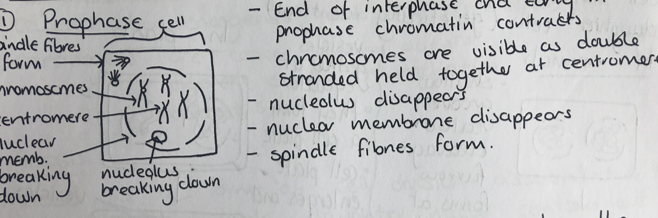 ① Prophase cell
indle fibres
form
hromosomes
entromere
uclear
memb.
breaking
down
nucleolus
breaking down
- End of interphase and early in
prophase chromatin contracts
- chromosomes are visible as double
stranded held together at centromere
- nucleolus disappears
- nuclear membrane disappears
- spindle fibres form.